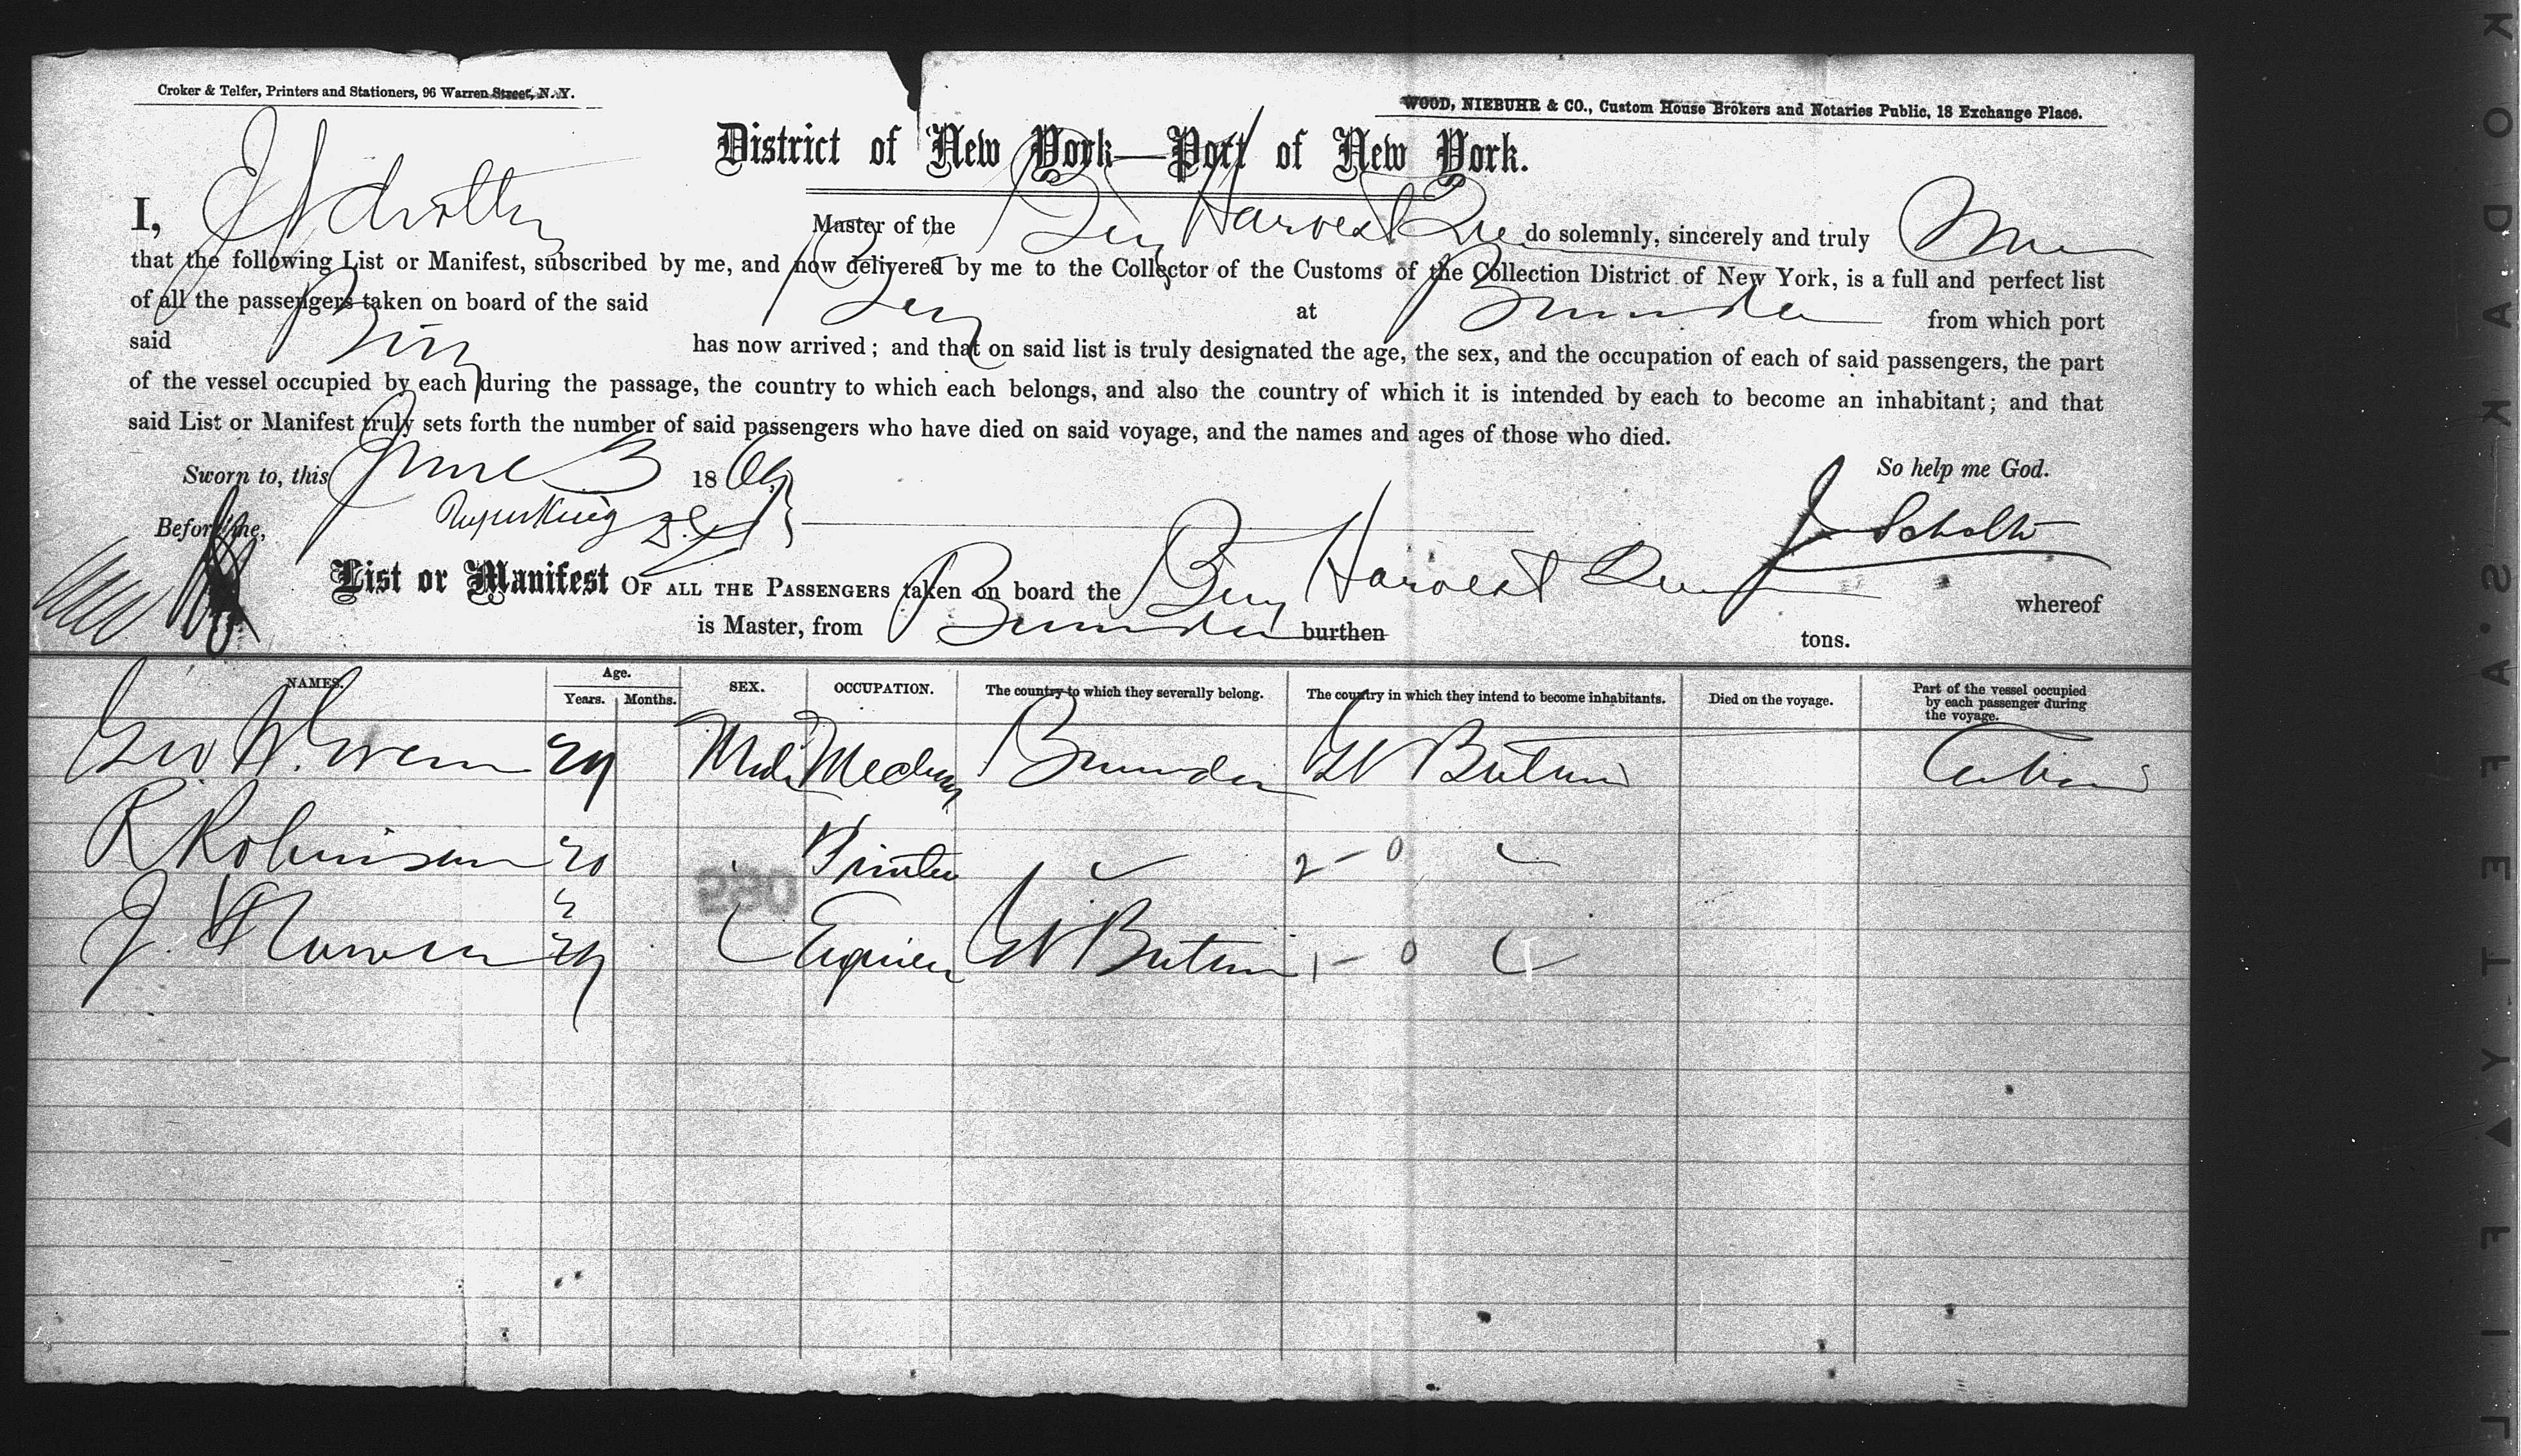 Croker & Telfer, Printers and Stationers, 96 Warren Street, N. Y.
WOOD, NIEBUHR & CO., Custom House Brokers and Notaries Public, 18 Exchange Place.
District of New York—Port of New York.
I, J Scholtz Master of the Brig Harvest Queen do solemnly, sincerely and truly
that the following List or Manifest, subscribed by me, and now delivered by me to the Collector of the Customs of the Collection District of New York, is a full and perfect list
of all the passengers taken on board of the said Brig at Bermuda from which port
said Brig has now arrived; and that on said list is truly designated the age, the sex, and the occupation of each of said passengers, the part
of the vessel occupied by each during the passage, the country to which each belongs, and also the country of which it is intended by each to become an inhabitant; and that
said List or Manifest truly sets forth the number of said passengers who have died on said voyage, and the names and ages of those who died.
Sworn to, this June 3 18 So help me God.
Before me, J Scholtz
List or Manifest OF ALL THE PASSENGERS taken on board the Brig Harvest Queen whereof
is Master, from Bermuda burthen tons.
NAMES. Age. Years. Months. SEX. OCCUPATION. The country to which they severally belong. The country in which they intend to become inhabitants. Died on the voyage. Part of the vessel occupied by each passenger during the voyage.
Geo Male Bermuda Gt Britain Cabin
R Robinson 20 Printer 2 - 0
J. Gt Britain 1 - 0
290
KODAK · SAFETY ▲ FIL